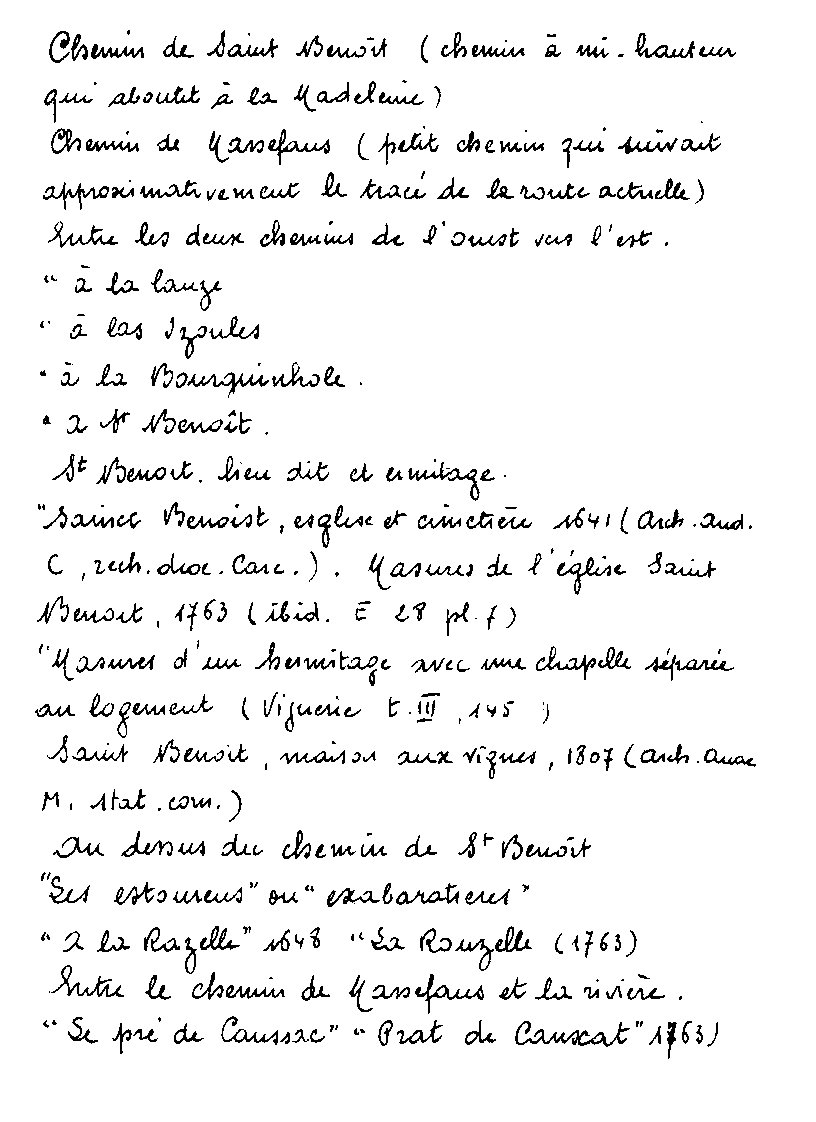 Chemin de Saint Benoît ( chemin à mi-hauteur
qui aboutit à la Madeleine )
Chemin de Massefans ( petit chemin qui suivait
approximativement le tracé de la route actuelle )
Entre les deux chemins de l'ouest vers l'est .
" à la lauze
" à las Izoules
" à la Bourquinhole .
" à St Benoît .
St Benoit. lieu dit et ermitage .
"Sainct Benoist , esglise et cimetière 1641 ( Arch. Aud.
C , rech. dioc. Carc. ) . Masures de l'église Saint
Benoit , 1763 ( ibid. E 28 pl. f )
"Masures d'un hermitage avec une chapelle séparée
au logement ( Viguerie t. III , 145 )
Saint Benoit , maison aux vignes , 1807 ( Arch. Aude
M. stat. com. )
Au dessus du chemin de St Benoît
"Les estourens" ou " exabaratieres "
" A la Razelle" 1648 " La Rouzelle (1763)
Entre le chemin de Massefans et la rivière .
" Le pré de Caussac" " Prat de Causcat" 1763)